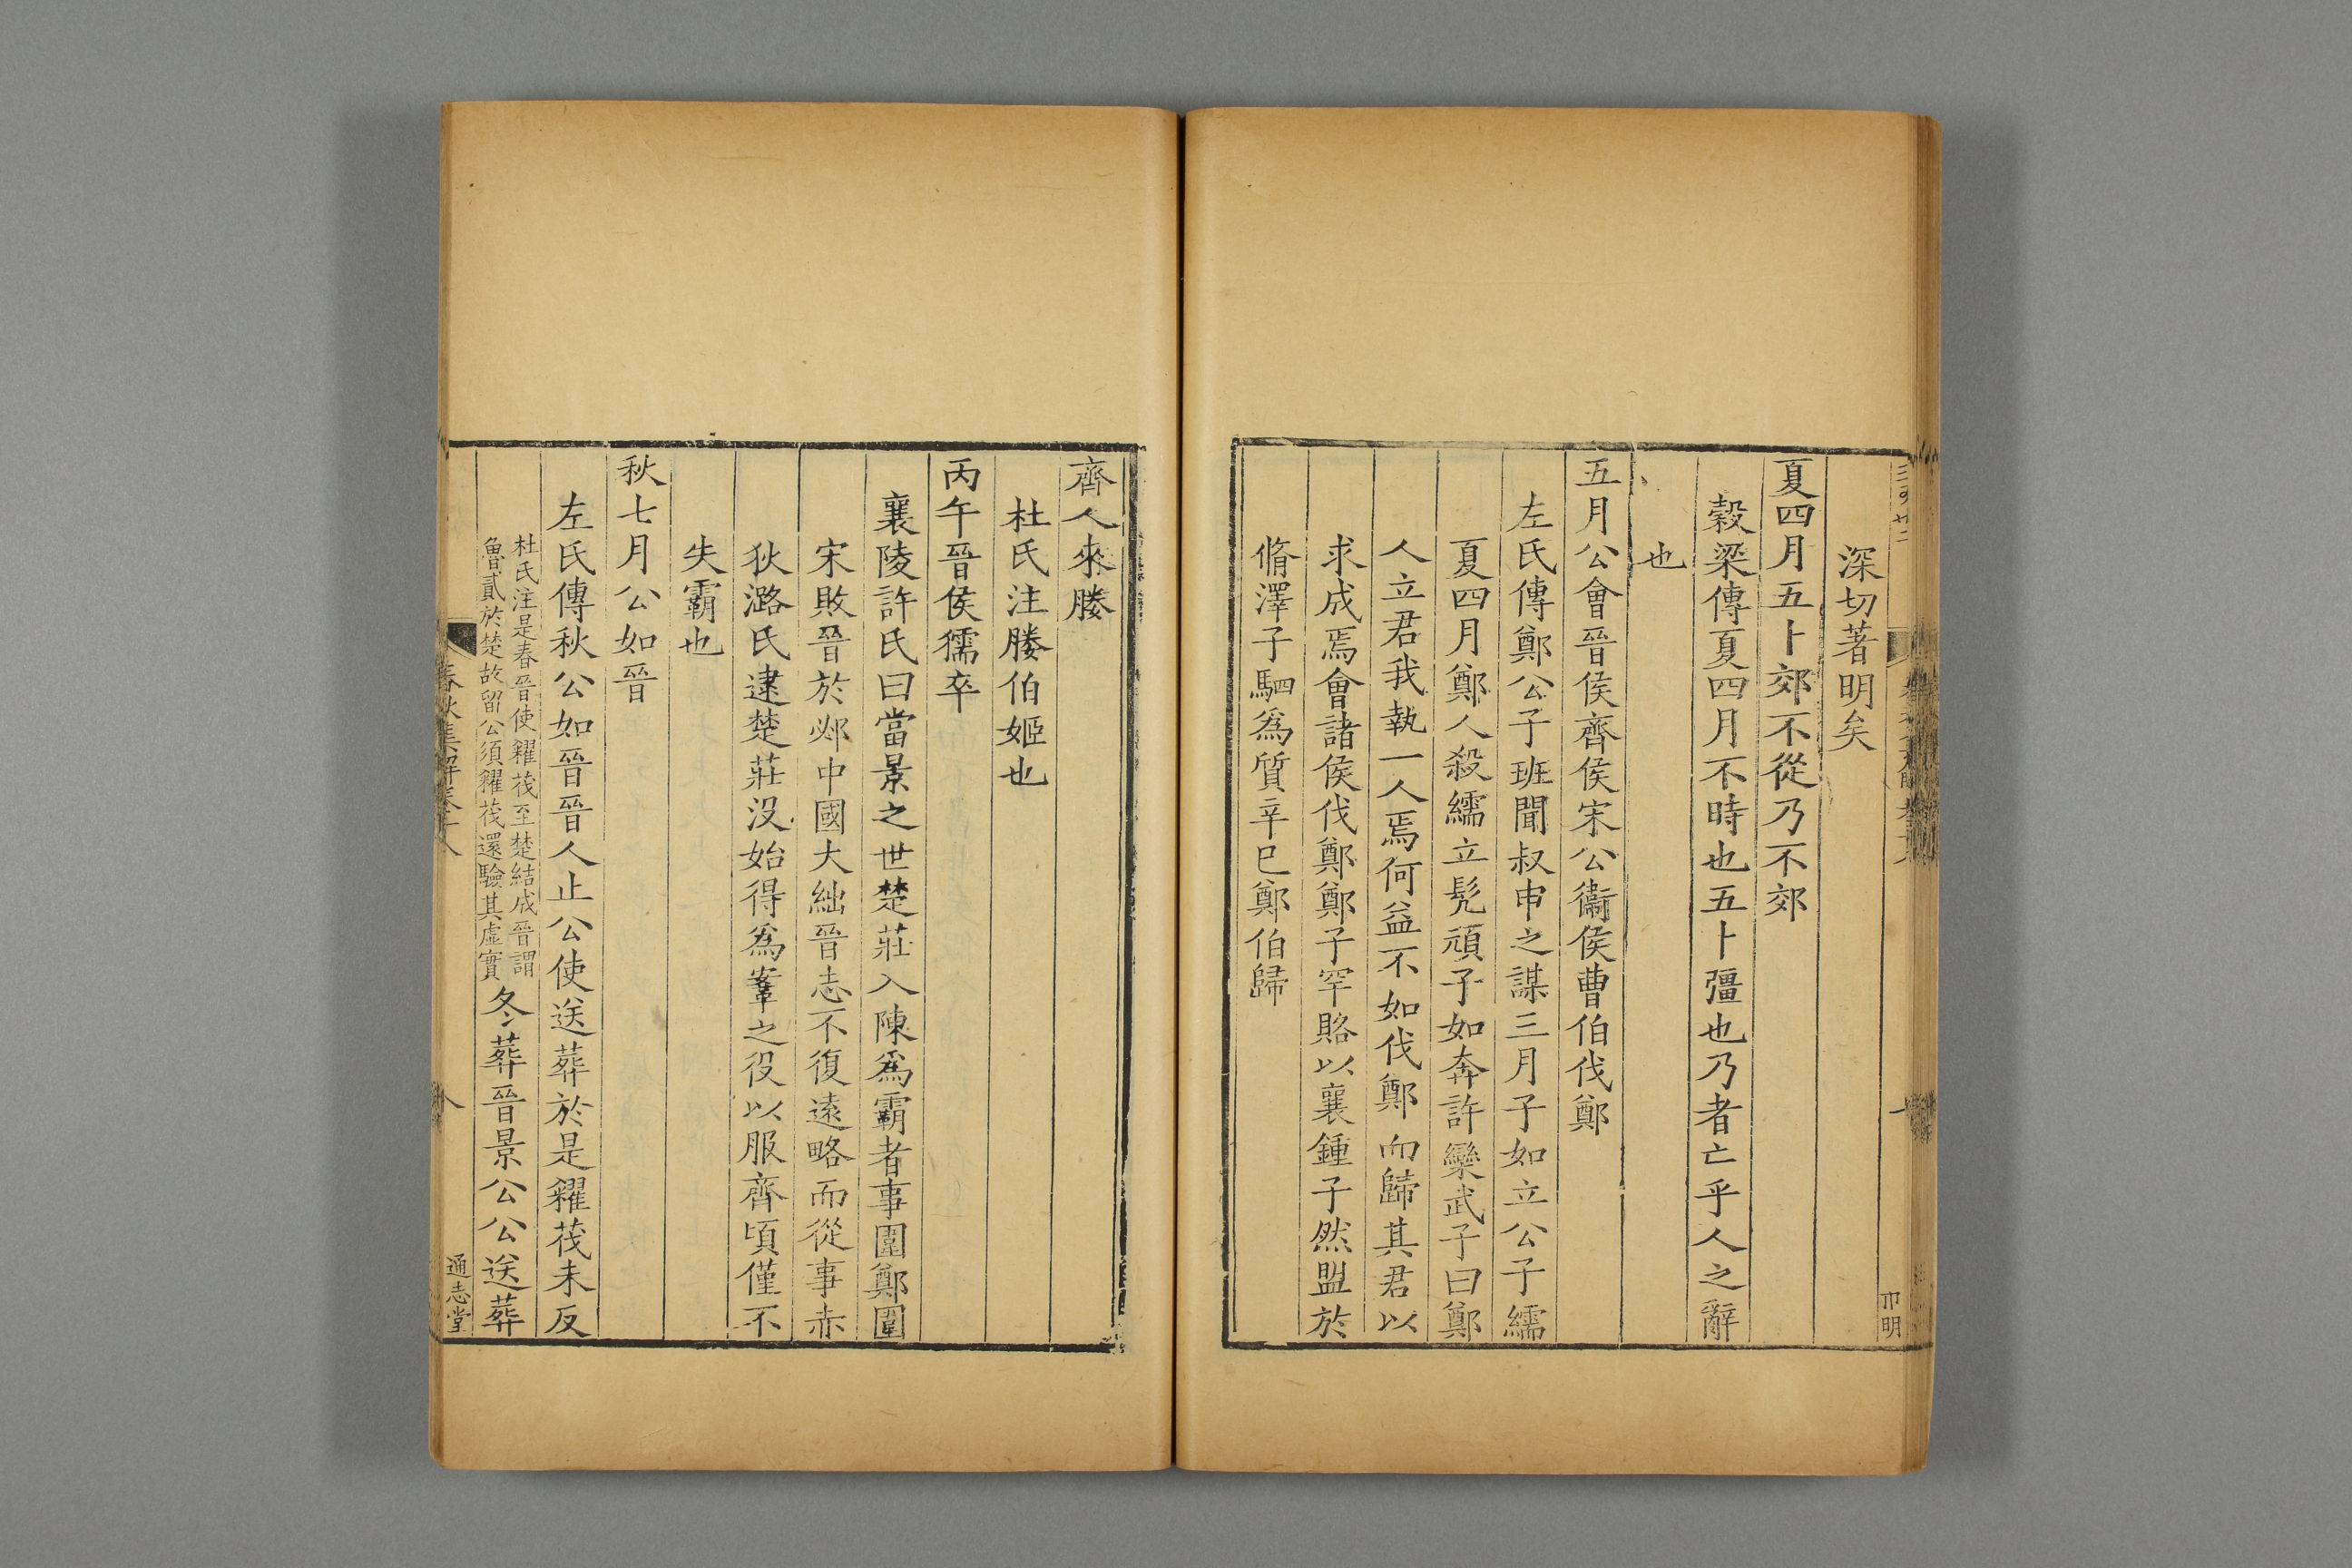 深切著明矣
夏四月五卜郊不從乃不郊
穀梁傳夏四月不時也五卜彊也乃者亡乎人之辭
也
五月公會晉侯齊侯宋公衞侯曹伯伐鄭
左氏傳鄭公子班聞叔申之謀三月子如立公子繻
夏四月鄭人殺繻立髡頑子如奔許欒武子曰鄭
人立君我執一人焉何益不如伐鄭而歸其君以
求成焉會諸侯伐鄭鄭子罕賂以襄鍾子然盟於
脩澤子駟爲質辛巳鄭伯歸
齊人來媵
杜氏注媵伯姬也
丙午晉侯獳卒
襄陵許氏曰當景之世楚莊入陳爲霸者事圍鄭圍
宋敗晉於邲中國大絀晉志不復遠略而從事赤
狄潞氏逮楚莊沒始得爲鞌之役以服齊頃僅不
失霸也
秋七月公如晉
左氏傳秋公如晉晉人止公使送葬於是糴茷未反
杜氏注是春晉使糴茷至楚結成晉謂
魯貳於楚故留公須糴茷還驗其虛實
冬葬晉景公公送葬
春秋集解卷十八
八
通志堂